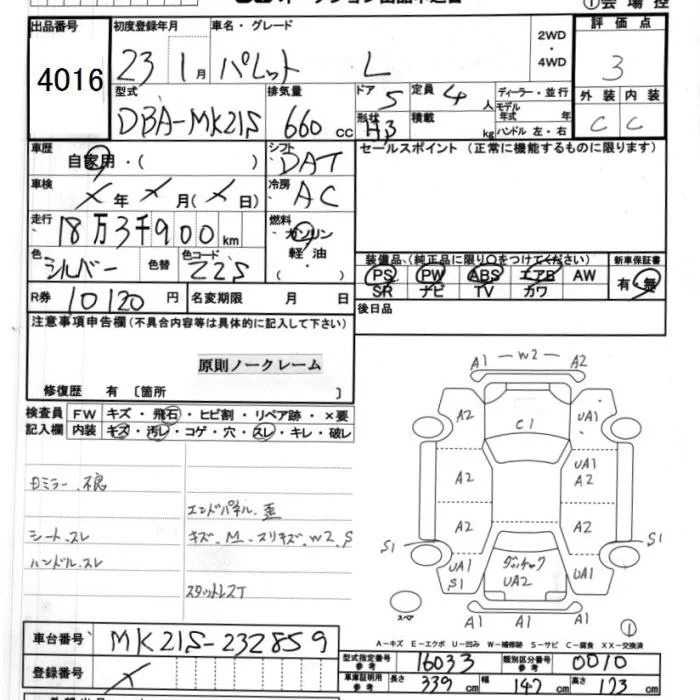 ①会場控
出品番号 初度登録年月 車名・グレード 2WD ・ 4WD 評価点
4016 23 1月 パレット L 3
型式 排気量 ドア 5 定員 4人 ディーラー・並行 外装 内装
DBA-MK21S 660cc 形状 H3 積載 kg モデル年式 年 ハンドル 左・右 C C
車歴 自家用・( ) シフト DAT セールスポイント (正常に機能するものに限ります)
車検 X年X月(X日) 冷房 AC
走行 18万3千900km 燃料 ガソリン 軽油
色 シルバー 色替 色コード ZZS 装備品(純正品に限り○をつけてください) 新車保証書
PS PW ABS エアB AW 有・無
SR ナビ TV カワ
R券 10120円 名変期限 月 日 後日品
注意事項申告欄(不具合内容等は具体的に記入して下さい)
原則ノークレーム
修復歴 有 〔箇所 〕
検査員 FW キズ・飛石・ヒビ割・リペア跡・×要
記入欄 内装 キズ・汚レ・コゲ・穴・スレ・キレ・破レ
Dミラー、不良
エンドパネル、歪
シート、スレ キズ、M、スリキズ、W2、S
ハンドル、スレ
スタットレスT
A1 W2 A2
A2 C1 UA1
A2 UA1 A2
A2 UA1
S1 S1
UA1 S1 UA2 UA1
A1 A1 A1
スペア ①
A-キズ E-エクボ U-凹み W-補修跡 S-サビ C-腐食 XX-交換済
車台番号 MK21S-232859
型式指定番号 参考 16033 類別区分番号 参考 0010
登録番号 X
車庫証明用 参考 長さ 339cm 幅 147cm 高さ 173cm